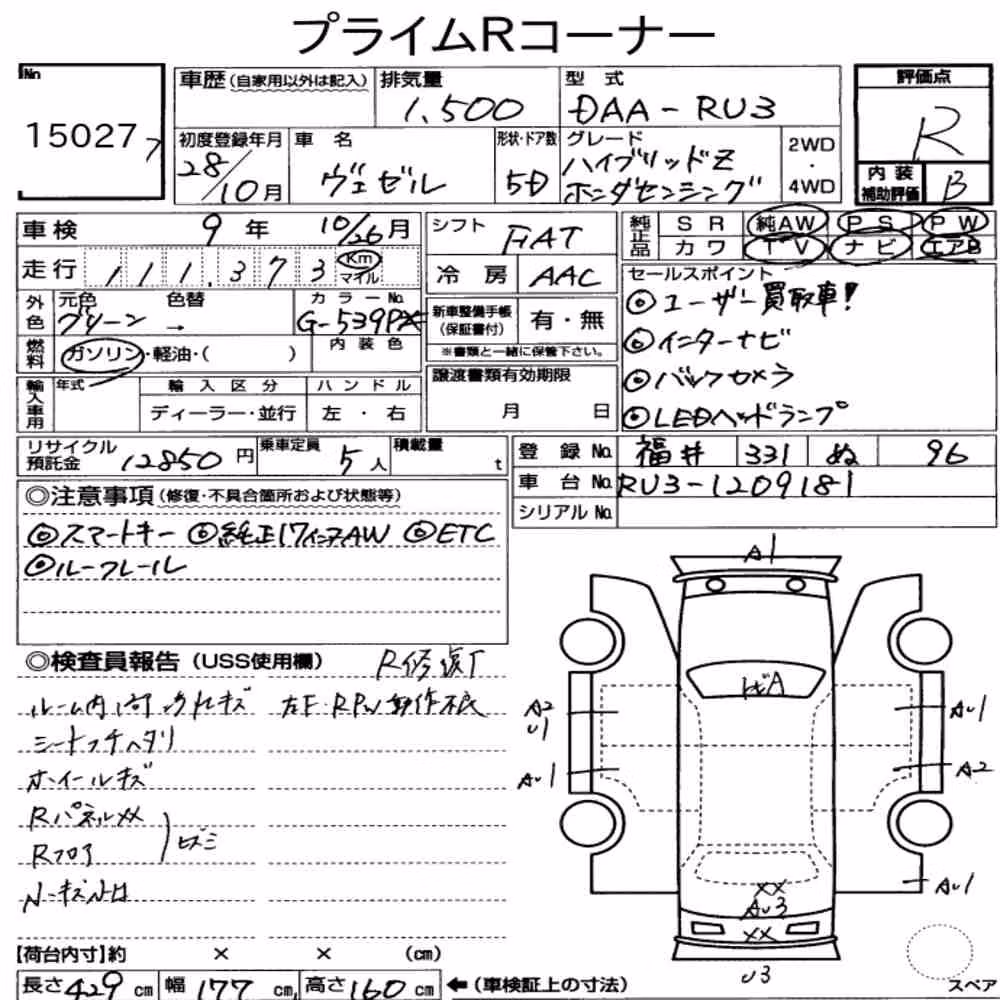 プライムRコーナー
No
15027 7
車歴 (自家用以外は記入)
排気量
1,500
型式
DAA-RU3
評価点
R
初度登録年月
28/10月
車名
ヴェゼル
形状・ドア数
5D
グレード
ハイブリッドZ
ホンダセンシング
2WD
・
4WD
内装
補助評価
B
車検 9年 10/26月
走行 111,373 Km
マイル
外色
元色 色替
グリーン →
カラーNo.
G-539PX
燃料
ガソリン・軽油・( )
内装色
輸入車用
年式
輸入区分
ディーラー・並行
ハンドル
左・右
シフト
FAT
冷房
AAC
新車整備手帳
(保証書付)
有・無
※書類と一緒に保管下さい。
譲渡書類有効期限
月 日
純正品
SR 純AW PS PW
カワ TV ナビ エアB
セールスポイント
◎ユーザー買取車!
◎インターナビ
◎バックカメラ
◎LEDヘッドランプ
リサイクル
預託金 12850円
乗車定員
5人
積載量
t
登録No. 福井 331 ぬ 96
車台No. RU3-1209181
シリアルNo.
◎注意事項(修復・不具合箇所および状態等)
◎スマートキー ◎純正17インチAW ◎ETC
◎ルーフレール
◎検査員報告 (USS使用欄)
ルーム内 キズ
左F・RPW動作不良
シート ヘタリ
ホイールキズ
RパネルXX
Rフロア
A1
A2
U1
AU1
AU1
A2
AU1
XX
AU3
XX
U3
スペア
【荷台内寸】約 × × (cm)
長さ429cm 幅177cm 高さ160cm ←(車検証上の寸法)